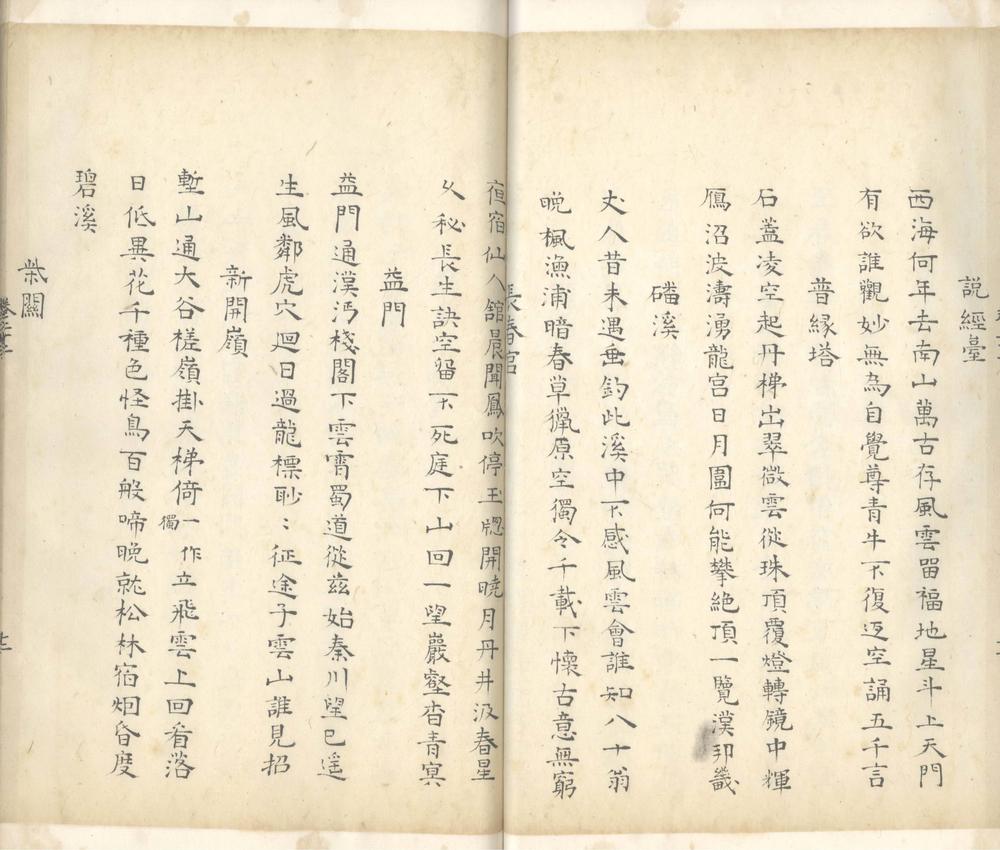 說經臺
西海何年去南山萬古存風雲留福地星斗上天門
有欲誰觀妙無為自覺尊青牛不復返空誦五千言
普緣塔
石蓋凌空起丹梯出翠微雲從珠頂覆燈轉鏡中輝
鴈沼波濤湧龍宮日月圍何能攀絕頂一覽漢邦畿
磻溪
丈人昔未遇垂釣此溪中不感風雲會誰知八十翁
晚楓漁浦暗春草獵原空獨令千載下懷古意無窮
長春宮
夜宿仙人館晨聞鳳吹停玉牕開曉月丹井汲春星
久秘長生訣空留不死庭下山回一望巖壑杳青冥
益門
益門通漢沔棧閣下雲霄蜀道從茲始秦川望已遙
生風鄰虎穴迴日過龍標眇〻征途子雲山誰見招
新開嶺
塹山通大谷槎嶺掛天梯倚一作獨立飛雲上回看落
日低異花千種色怪鳥百般啼晚就松林宿烟昏度
碧溪
柴關